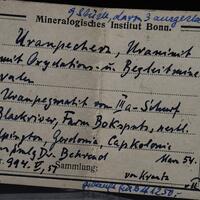 9 Stück, davon 3 ausgel
Mineralogisches Institut Bonn.
Uranpecherz, Uraninit
mit Oxydations- u. Begleitmine
ralen
Uranpegmatit vom IIIa-Schurf
Blackriver, Farm Boksputs, nestl.
Upington Gordonia, Capkolonie
Dr. Behrend
Sammlung:
von Krantz
1250,-